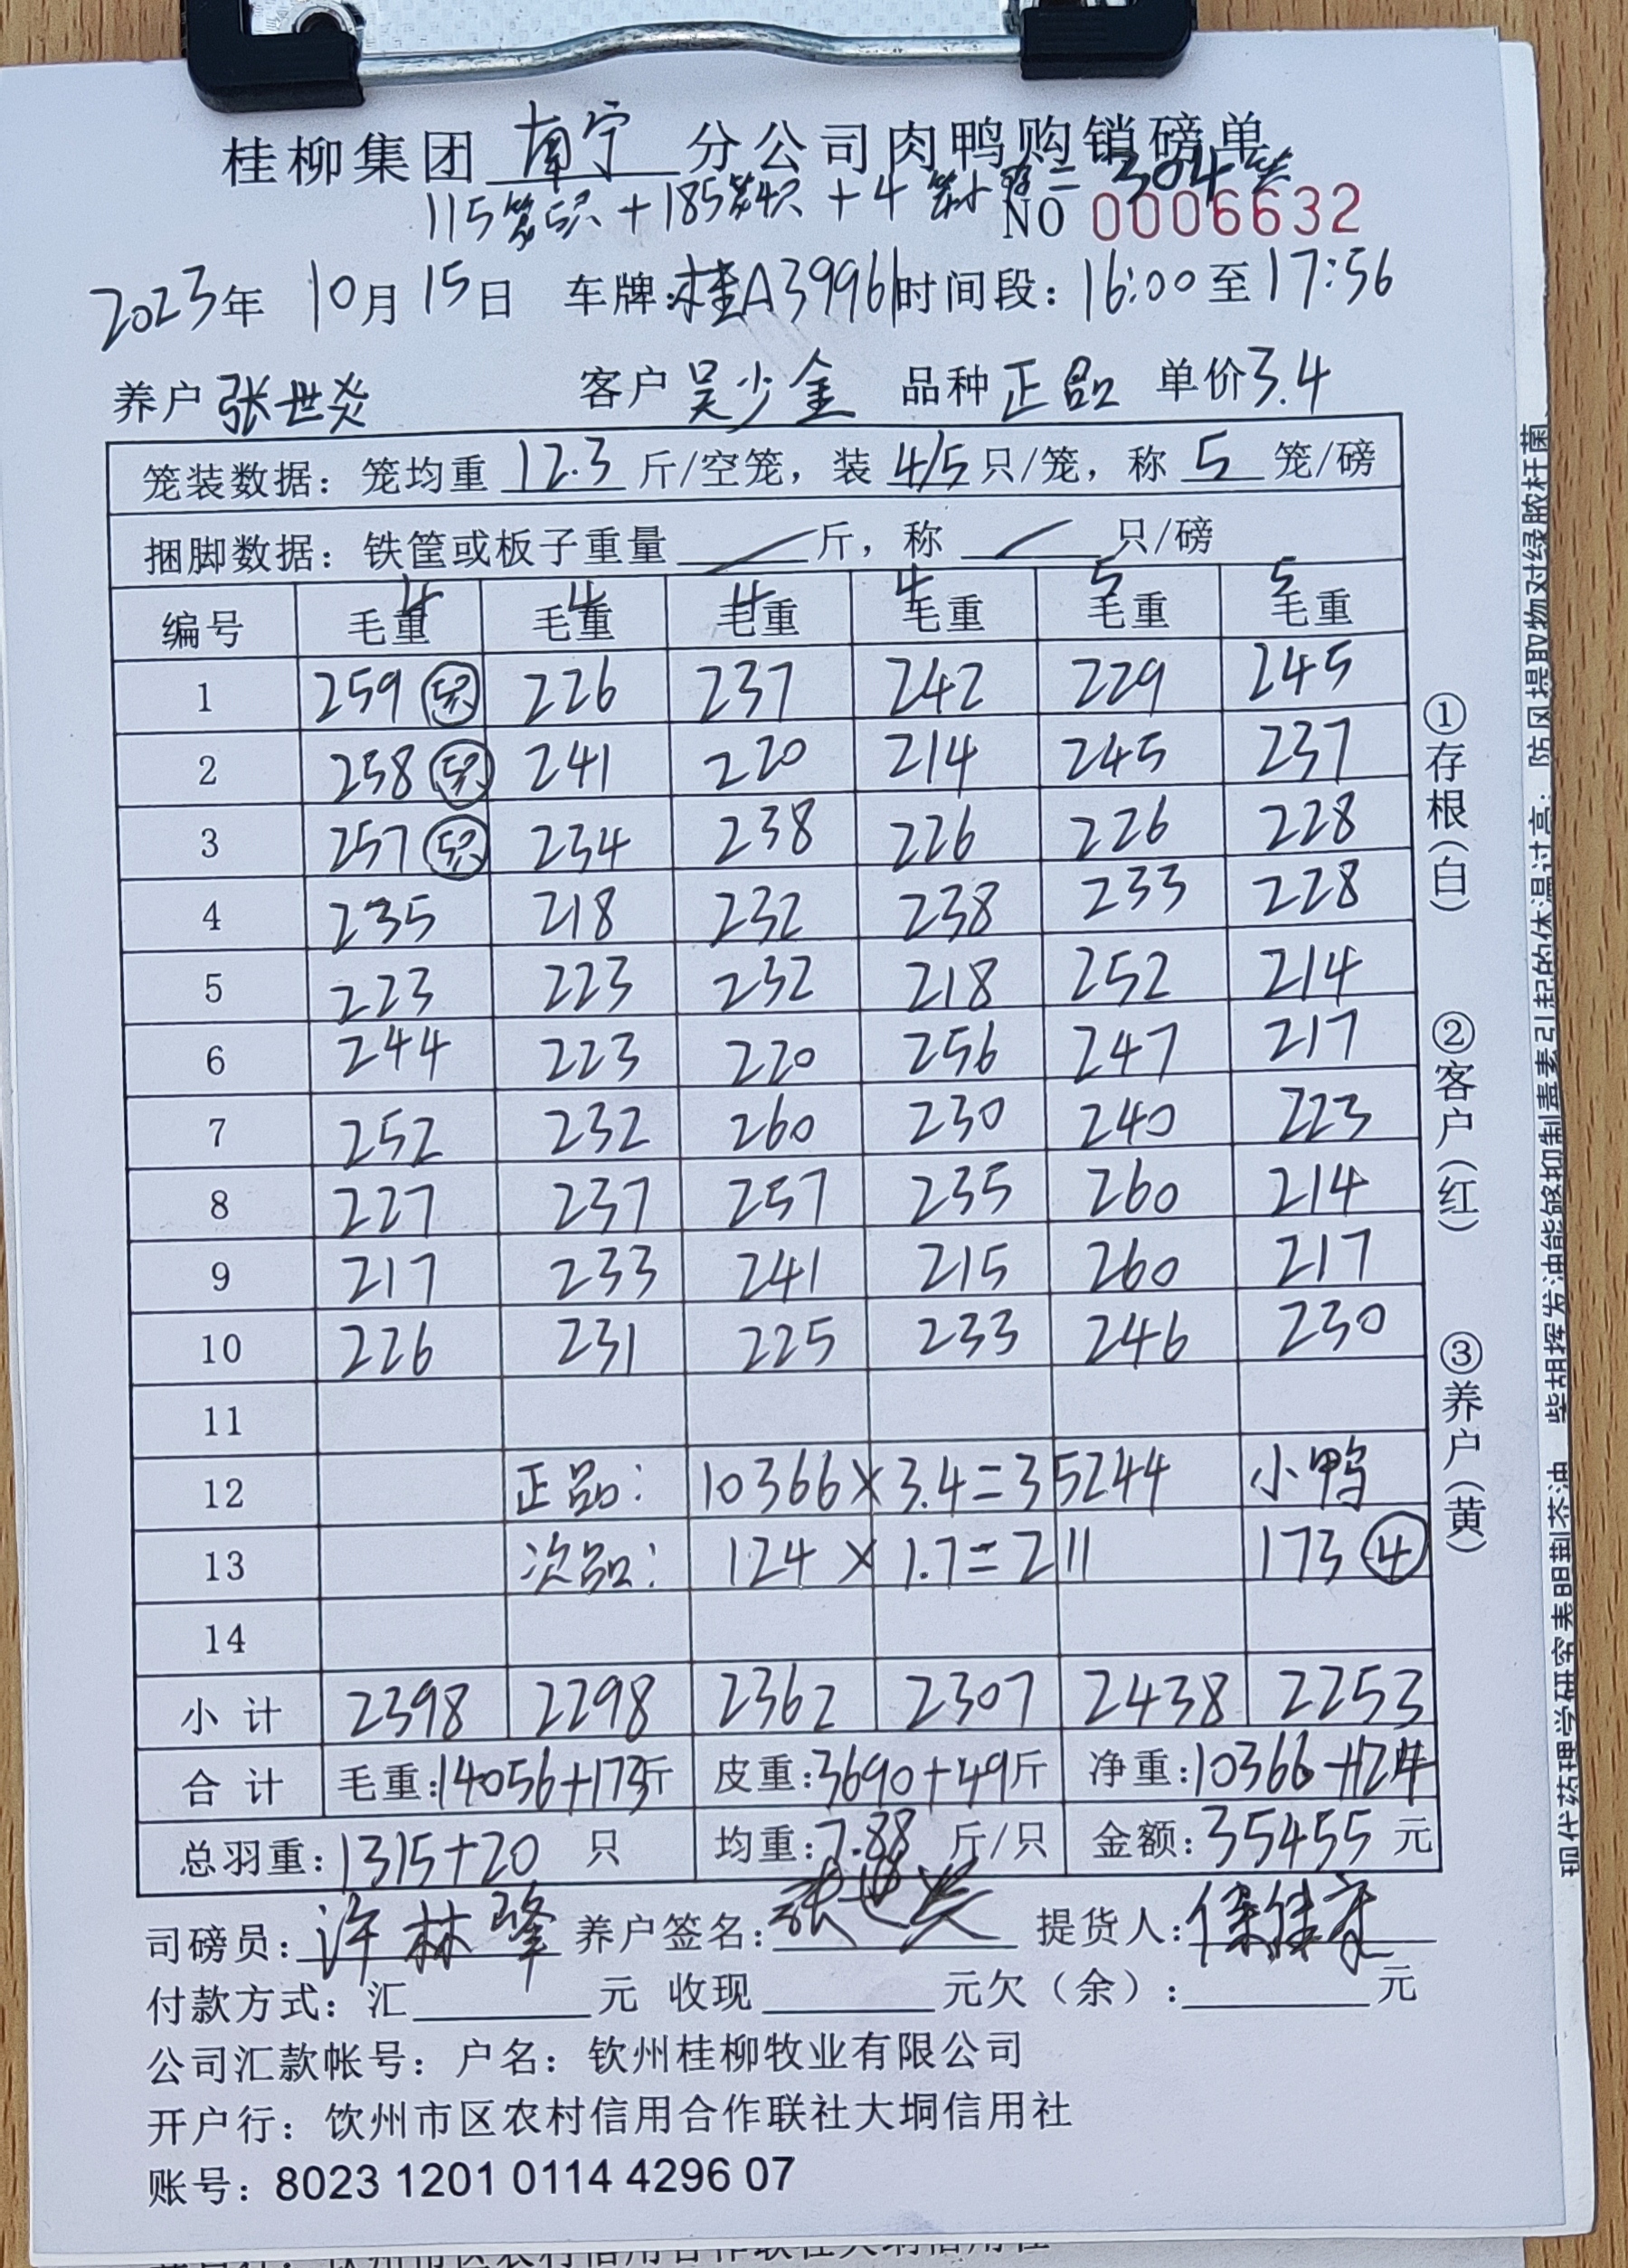 桂柳集团 南宁 分公司肉鸭购销磅单
115笼5只+185笼4只+4笼小鸭=304笼
NO 0006632
2023年 10月 15日 车牌:桂A39961 时间段: 16:00 至 17:56
养户 张世炎 客户 吴少金 品种 正品 单价 3.4
笼装数据: 笼均重 12.3 斤/空笼, 装 4/5 只/笼, 称 5 笼/磅
捆脚数据: 铁筐或板子重量 / 斤, 称 / 只/磅
4 4 4 4 5 5
编号 毛重 毛重 毛重 毛重 毛重 毛重
1 259 5只 226 237 242 229 245
2 258 5只 241 220 214 245 237
3 257 5只 234 238 226 226 228
4 235 218 232 238 233 228
5 223 223 232 218 252 214
6 244 223 220 256 247 217
7 252 232 260 230 240 223
8 227 237 257 235 260 214
9 217 233 241 215 260 217
10 226 231 225 233 246 230
11
12 正品: 10366×3.4=35244 小鸭
13 次品: 124×1.7=211 173 ④
14
小计 2398 2298 2362 2307 2438 2253
合计 毛重:14056+173斤 皮重:3690+49斤 净重:10366+124斤
总羽重:1315+20 只 均重:7.88 斤/只 金额:35455 元
司磅员: 许林 养户签名: 张世炎 提货人:
付款方式: 汇 元 收现 元欠(余): 元
公司汇款帐号: 户名: 钦州桂柳牧业有限公司
开户行: 饮州市区农村信用合作联社大垌信用社
账号: 8023 1201 0114 4296 07
①存根(白)
②客户(红)
③养户(黄)
防风提取物对绿脓杆菌
柴胡挥发油能够抑制毒素引起的体温过高;
现代药理学研究表明荆芥油